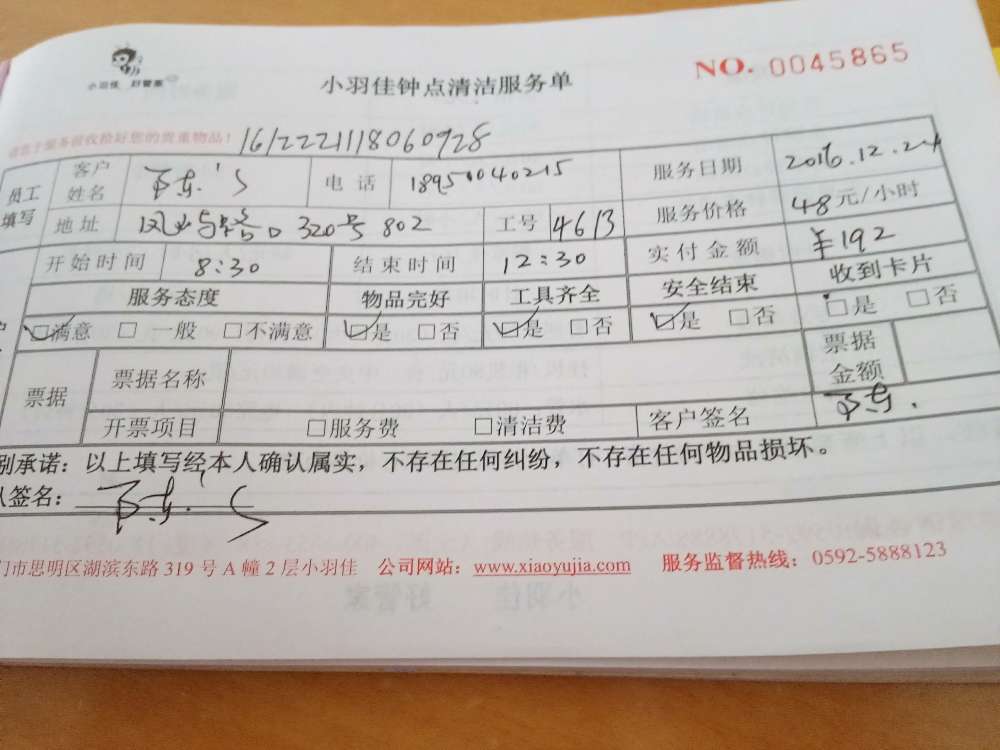 小羽佳 好管家
小羽佳钟点清洁服务单
NO. 0045865
您的贵重物品!
1612221118060928
员工填写 客户姓名 电话 18950040215 服务日期 2016.12.24
地址 320号 802 工号 4613 服务价格 48元/小时
开始时间 8:30 结束时间 12:30 实付金额 ¥192
服务态度 物品完好 工具齐全 安全结束 收到卡片
☑满意 □ 一般 □不满意 ☑是 □否 ☑是 □否 ☑是 □否 □是 □否
票据 票据名称 票据金额
开票项目 □服务费 □清洁费 客户签名
别承诺：以上填写经本人确认属实，不存在任何纠纷，不存在任何物品损坏。
签名：
门市思明区湖滨东路 319 号 A 幢 2 层小羽佳 公司网站：www.xiaoyujia.com 服务监督热线：0592-5888123